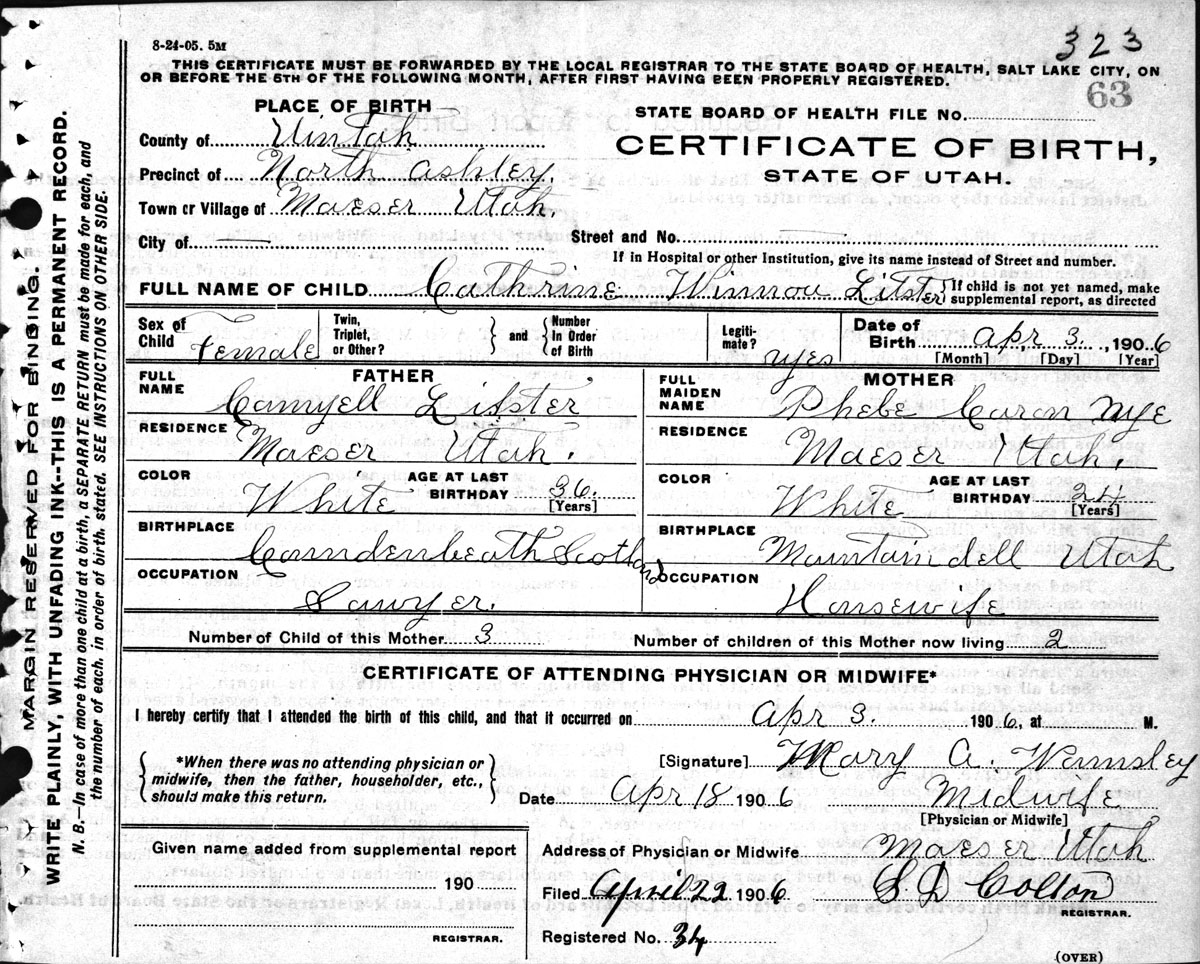 323
8-24-05. 5M
THIS CERTIFICATE MUST BE FORWARDED BY THE LOCAL REGISTRAR TO THE STATE BOARD OF HEALTH, SALT LAKE CITY, ON
OR BEFORE THE 5TH OF THE FOLLOWING MONTH, AFTER FIRST HAVING BEEN PROPERLY REGISTERED.
63
PLACE OF BIRTH
STATE BOARD OF HEALTH FILE No.
County of Uintah
CERTIFICATE OF BIRTH,
Precinct of North Ashley.
STATE OF UTAH.
Town or Village of Maeser Utah.
City of — Street and No.
If in Hospital or other Institution, give its name instead of Street and number.
FULL NAME OF CHILD Cathrine Winnou Litster { If child is not yet named, make supplemental report, as directed
Sex of Child Female Twin, Triplet, or Other? } and { Number In Order of Birth Legiti-mate? yes Date of Birth Apr 3, 1906
[Month] [Day] [Year]
FATHER MOTHER
FULL NAME Camyell Litster FULL MAIDEN NAME Phebe Caron Nye
RESIDENCE Maeser Utah. RESIDENCE Maeser Utah.
COLOR White AGE AT LAST BIRTHDAY 36. [Years] COLOR White AGE AT LAST BIRTHDAY 24 [Years]
BIRTHPLACE Coundenbeath Scotland BIRTHPLACE Mountaindell Utah
OCCUPATION Sawyer. OCCUPATION Housewife
Number of Child of this Mother 3 Number of children of this Mother now living 2
CERTIFICATE OF ATTENDING PHYSICIAN OR MIDWIFE*
I hereby certify that I attended the birth of this child, and that it occurred on Apr 3. 1906, at M.
{ *When there was no attending physician or midwife, then the father, householder, etc., should make this return. }
[Signature] Mary A. Wamsley
Date Apr 18 1906 Midwife
[Physician or Midwife]
Given name added from supplemental report
190
REGISTRAR.
Address of Physician or Midwife Maeser Utah
Filed April 22 1906 S. D. Colton
REGISTRAR.
Registered No. 34
(OVER)
MARGIN RESERVED FOR BINDING.
WRITE PLAINLY, WITH UNFADING INK--THIS IS A PERMANENT RECORD.
N. B.—In case of more than one child at a birth, a SEPARATE RETURN must be made for each, and
the number of each, in order of birth, stated. SEE INSTRUCTIONS ON OTHER SIDE.